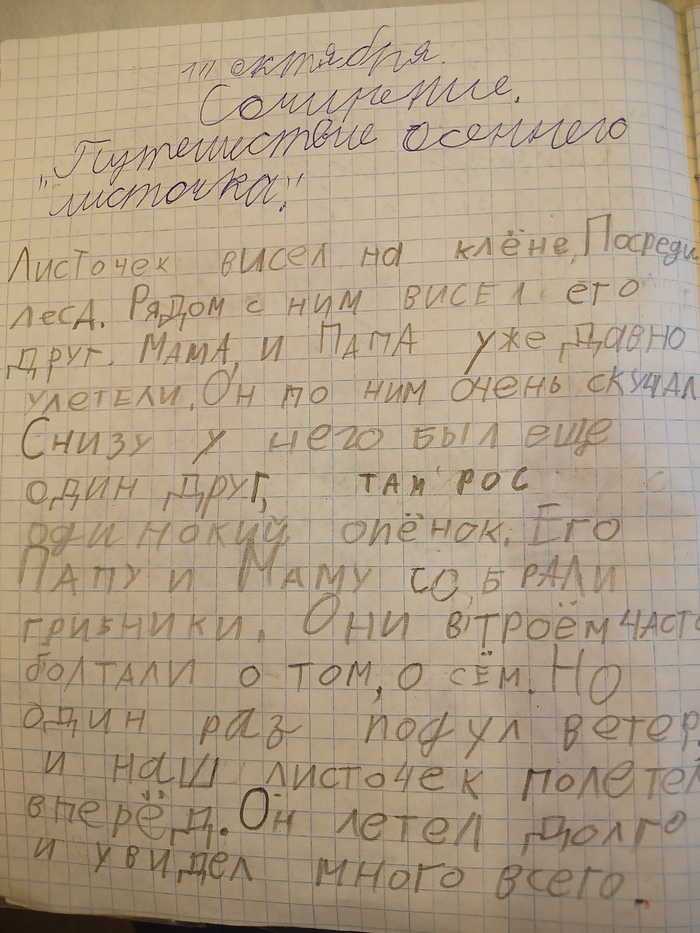 октября.
Сочинение.
"Путешествие осеннего
листочка".
Листочек висел на клёне, Посреди
леса. Рядом с ним висел его
друг. Мама, и Папа уже давно
улетели. Он по ним очень скучал
Снизу у него был еще
один друг, там рос
одинокий опёнок. Его
Папу и Маму собрали
грибники. Они втроём часто
болтали о том, о сём. Но
один раз подул ветер
и наш листочек полетел
вперёд. Он летел долго
и увидел много всего.